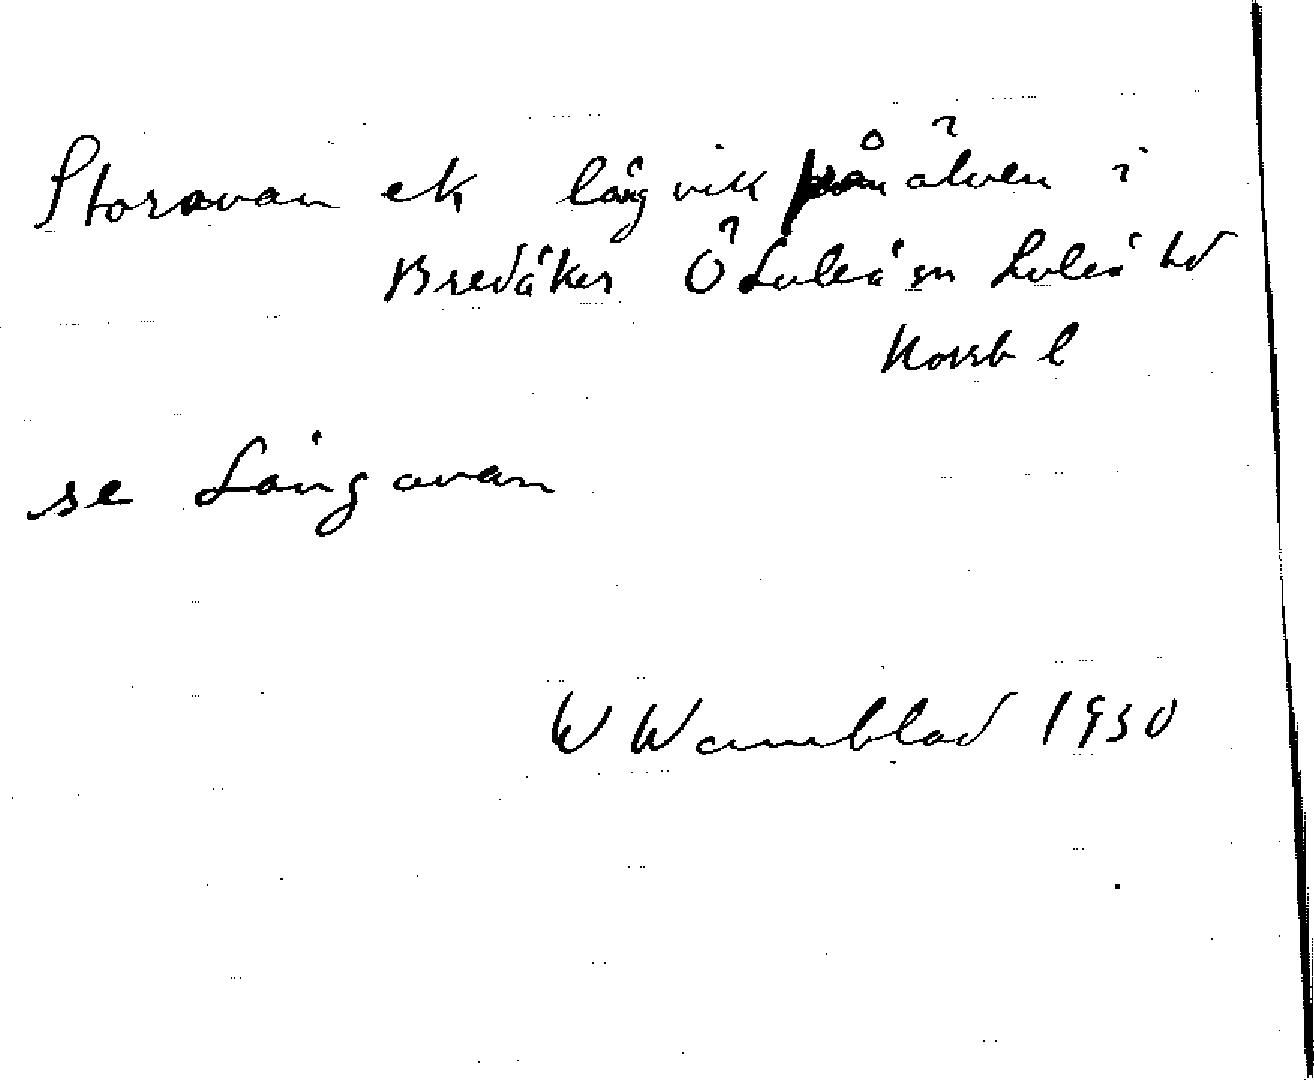 Storavan ek lång vik från älven i
Bredåker Ö Luleå sn Luleå hd
Norrb l
se Långavan
W Warnblad 1930